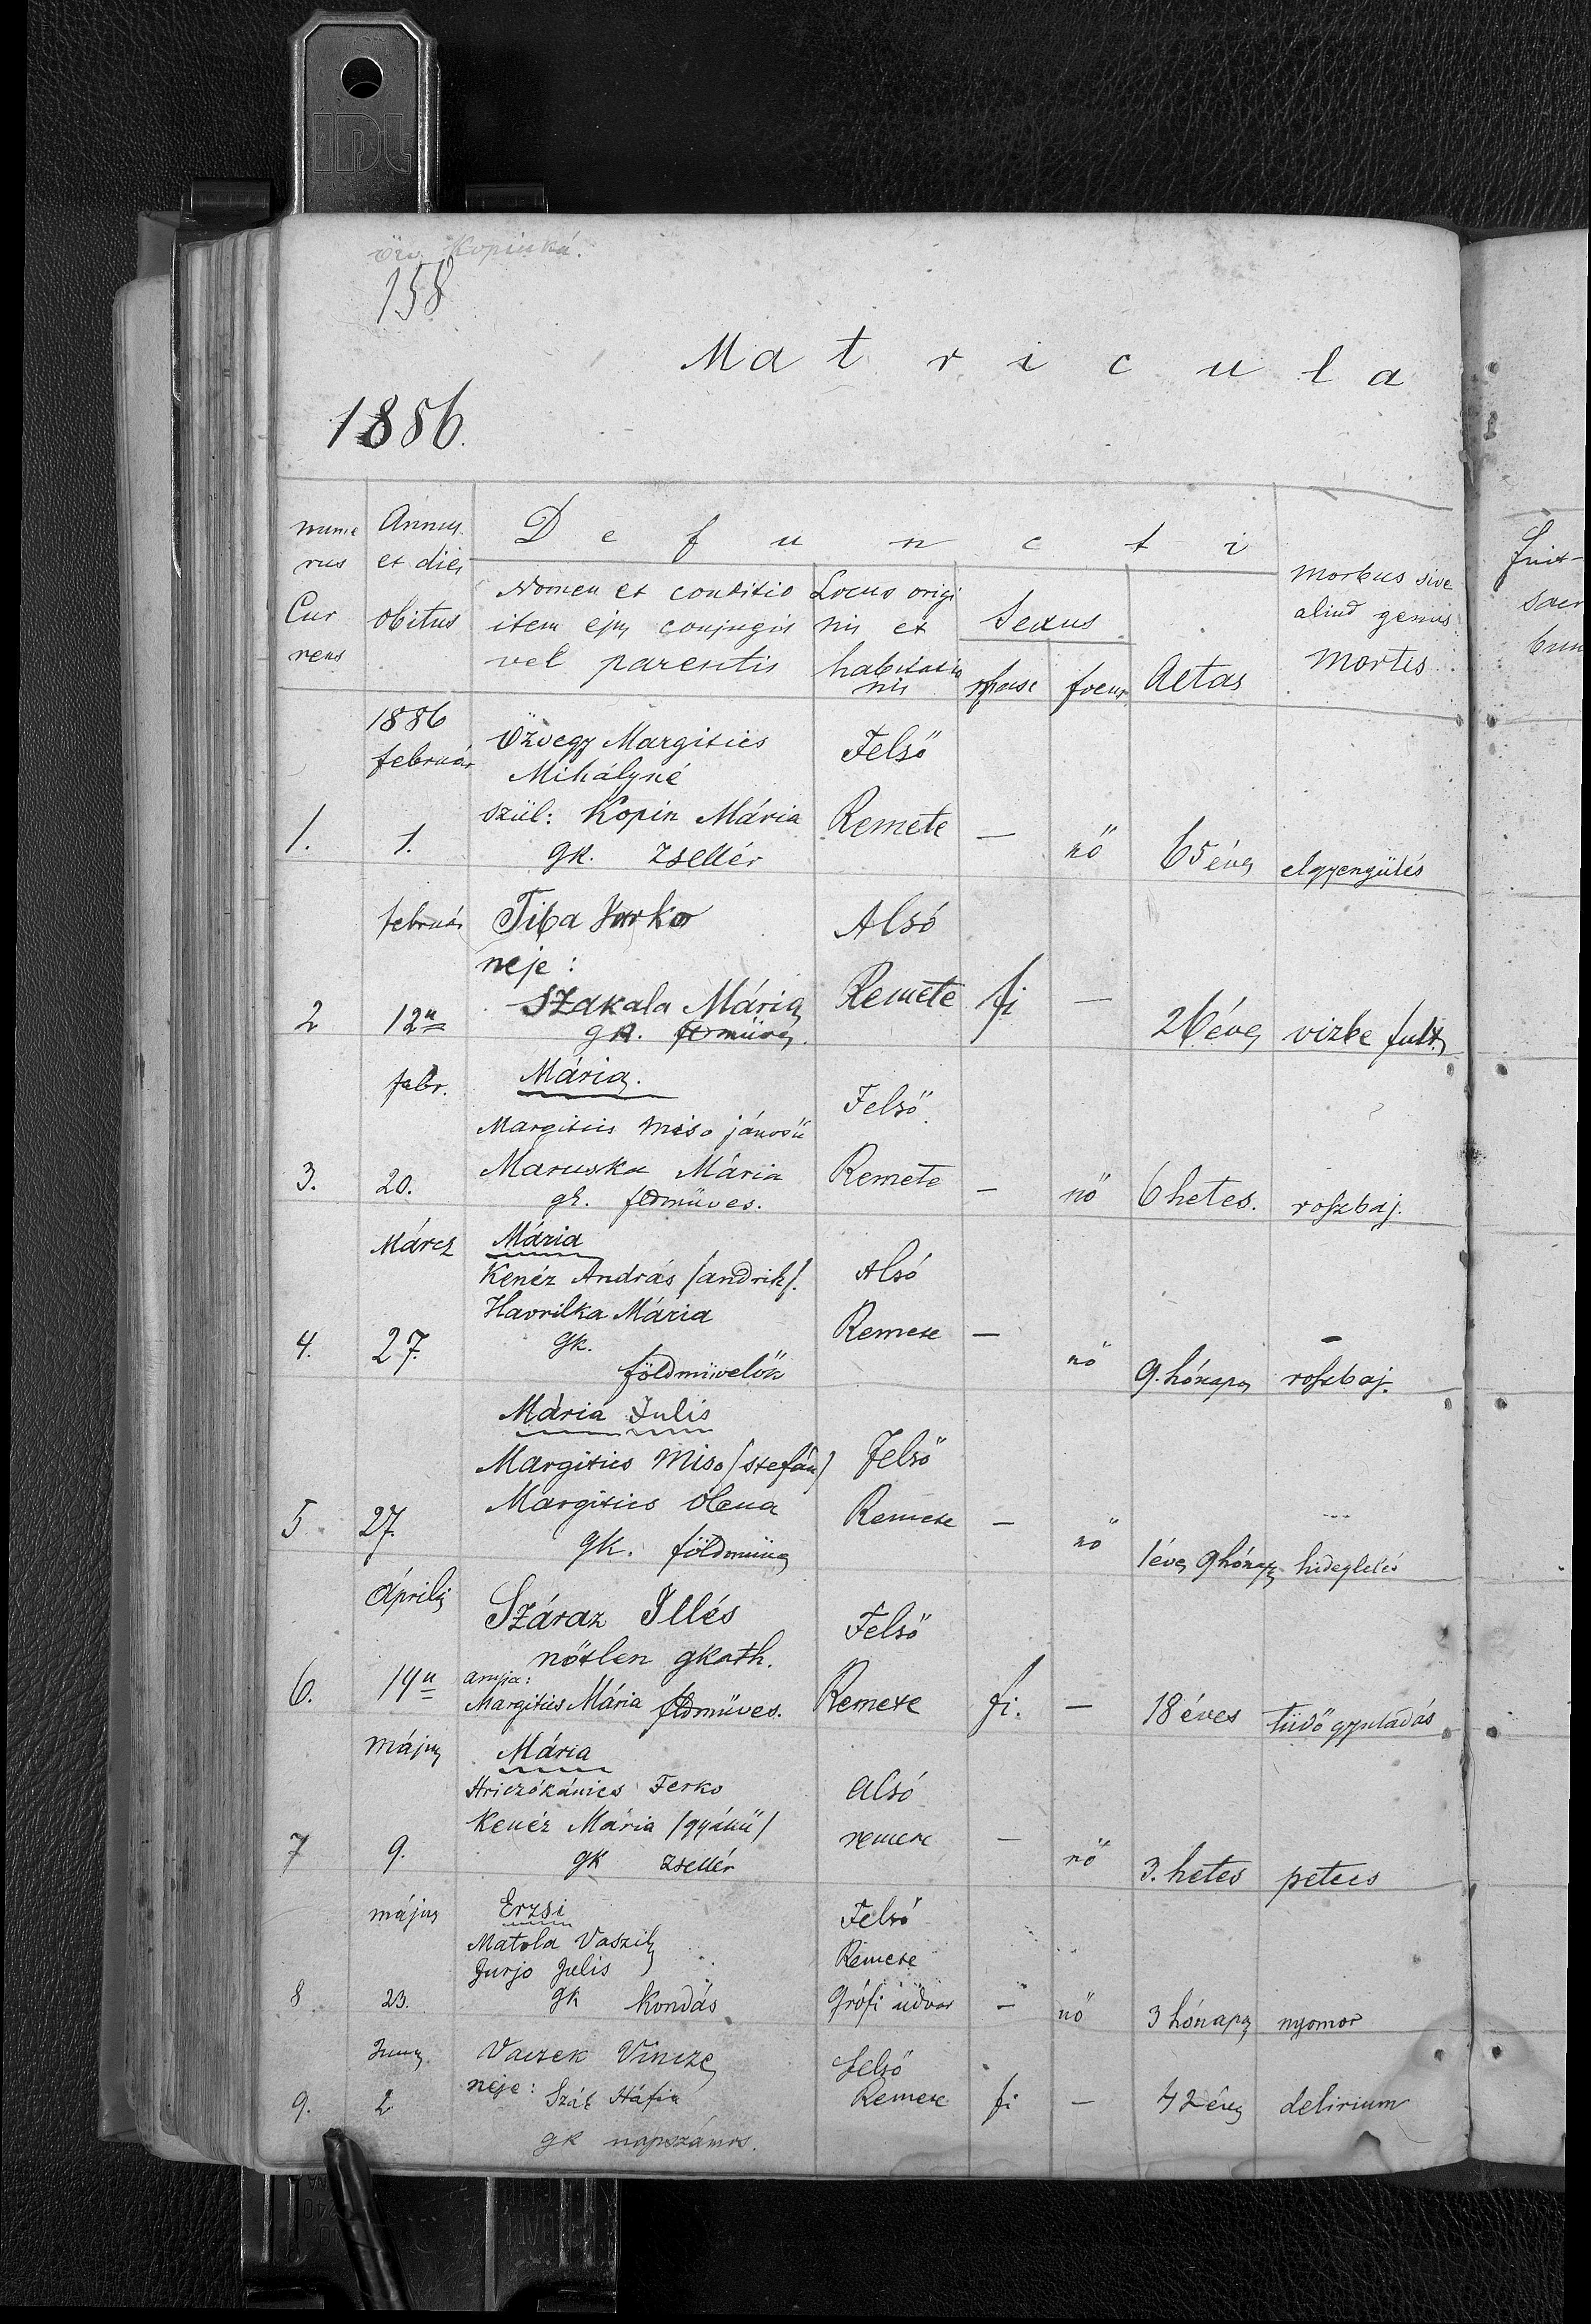 özv. Kopinká.
158
Matricula
1886.
nume Annus Defuncti
rus et dies morbus sive
Nomen et conditio Locus origi Sexus aliud genus
Cur obitus item ejus conjugis nis et
rens vel parentis habitatio masc foem Aetas mortis
nis
1886
február Özvegy Margitics Felső
Mihályné
szül: Kopin Mária Remete
1. 1. gk. zsellér — nő 65 éves elgyengülés
február Tiba Jurko Alsó
neje:
Szakala Mária Remete fi —
2 12n gk. fdműves. 26 éves vizbe fult
febr. Mária. Felső
Margitics Miso jánosü
3. 20. Maruska Mária Remete — nő 6 hetes. roszbaj.
gk. fdműves.
Márcz Mária
Kenéz András /andrik/. Alsó
Havrilka Mária Remete —
4. 27. gk. nő 9. hónapos roszbaj.
földmivelők
Mária Julis
Margitics Miso /stefán/ Felső
5 27. Margitics Olena Remete — nő
gk. földműves 1 éves 9 hónapos hideglelés
Április Száraz Illés Felső
nőtlen gkath.
6. 14n anyja: Remete fi. — 18 éves tüdő gyuladás
Margitics Mária fldműves.
május Mária
Hriczókánics Ferko Alsó
Kenéz Mária /gyánü/ remete —
7 9. gk zsellér nő 3. hetes petecs
május Erzsi Felső
Matola Vaszily Remete
Jurjo Julis
8 23. gk kondás Grófi udvar — nő 3 hónapos nyomor
Junius Vaczek Vincze Felső
9. 2 neje: Remete fi — 42 éves delirium
gk napszámos.
Fuit
sacr